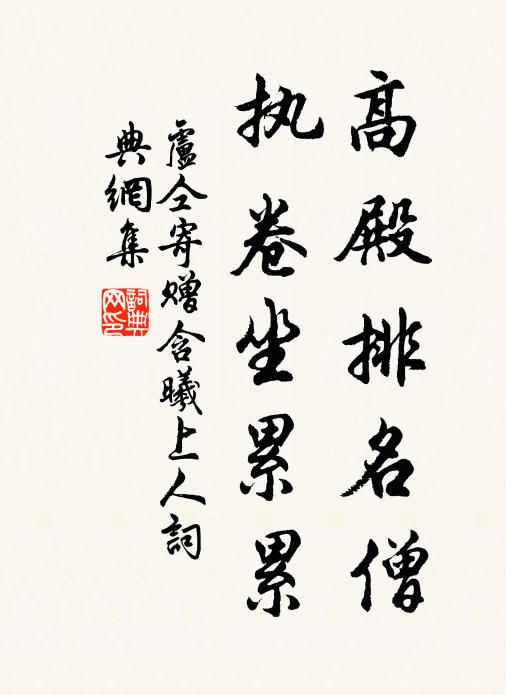 高殿排名僧
执卷坐累累
盧仝寄赠含曦上人詞
典網集
詞典
网印